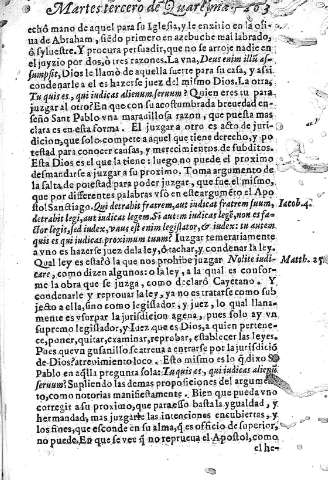 Martes tercero de Quaresma. 163
echó mano de aquel para su Iglesia, y le enxirio en la oli-
ua de Abraham, siẽdo primero en azebuche mal labrado,
ò syluestre. Y procura persuadir, que no se arroje nadie en
el juyzio por dos, ò tres razones. La vna, Deus enim illũ as-
sumpsit, Dios le llamò de aquella suerte para su casa, y assi
condenarle a el es hazerse juez del mismo Dios. La otra,
Tu quis es, qui iudicas alienum seruum? Quien eres tu para
juzgar al otro? En que con su acostumbrada breuedad en-
seño Sant Pablo vna marauillosa razon, que puesta mas
clara es en esta forma. El juzgar a otro es acto de juridi-
dicion, que solo compete a aquel que tiene derecho, y po-
testad para conocer causas, y merecimientos de subditos.
Esta Dios es el que la tiene: luego no puede el proximo
desmandarse a juzgar a su proximo. Toma argumento de
la falta de potestad para poder juzgar, que fue el mismo,
que por differentes palabras vsò en este argumẽto el Apo
stol Sanctiago. Qui detrahit fratrem, aut iudicat fratrem suum, Iacob. 4.
detrahit legi, aut iudicat legem. Si autem iudicas legẽ, non es fa-
ctor legis, sed iudex, vnus est enim legislator, & iudex: tu autem
quis es qui iudicas proximum tuum? Iuzgar temerariamente
a vno es hazerse juez de la ley, ò tachar, y condenar la ley.
Qual ley es esta? ò la que nos prohibe juzgar Nolite iudi- Matth. 25
care, como dizen algunos: o la ley, a la qual es confor-
me la obra que se juzga, como declarò Cayetano. Y
condenarle y reprouar la ley, ya no es tratarse como sub
jecto a ella, sino como legislador, y juez, lo qual llana-
mente es vsurpar la juridicion agena, pues solo ay vn
supremo legislador, y Iuez que es Dios, a quien pertene-
ce, poner, quitar, examinar, reprobar, establecer las leyes.
Pues que vn gusanillo se atreua a entrarse por la juridiciõ
de Dios? atreuimiento loco. Esto mismo es lo q̃ dixo S.
Pablo en aq̃lla pregunta sola: Tu quis es, qui iudicas alienũ
seruum? Supliendo las demas proposiciones del argumẽ-
to, como notorias manifiestamente. Bien que pueda vno
corregir a su proximo, que para esso basta ygualdad, y
hermandad, mas juzgarle las intenciones encubiertas, y
los fines, que esconde en su alma, q̃ es officio de superior,
no puede. En que se ve q̃ no reprueua el Apostol, como
el he-